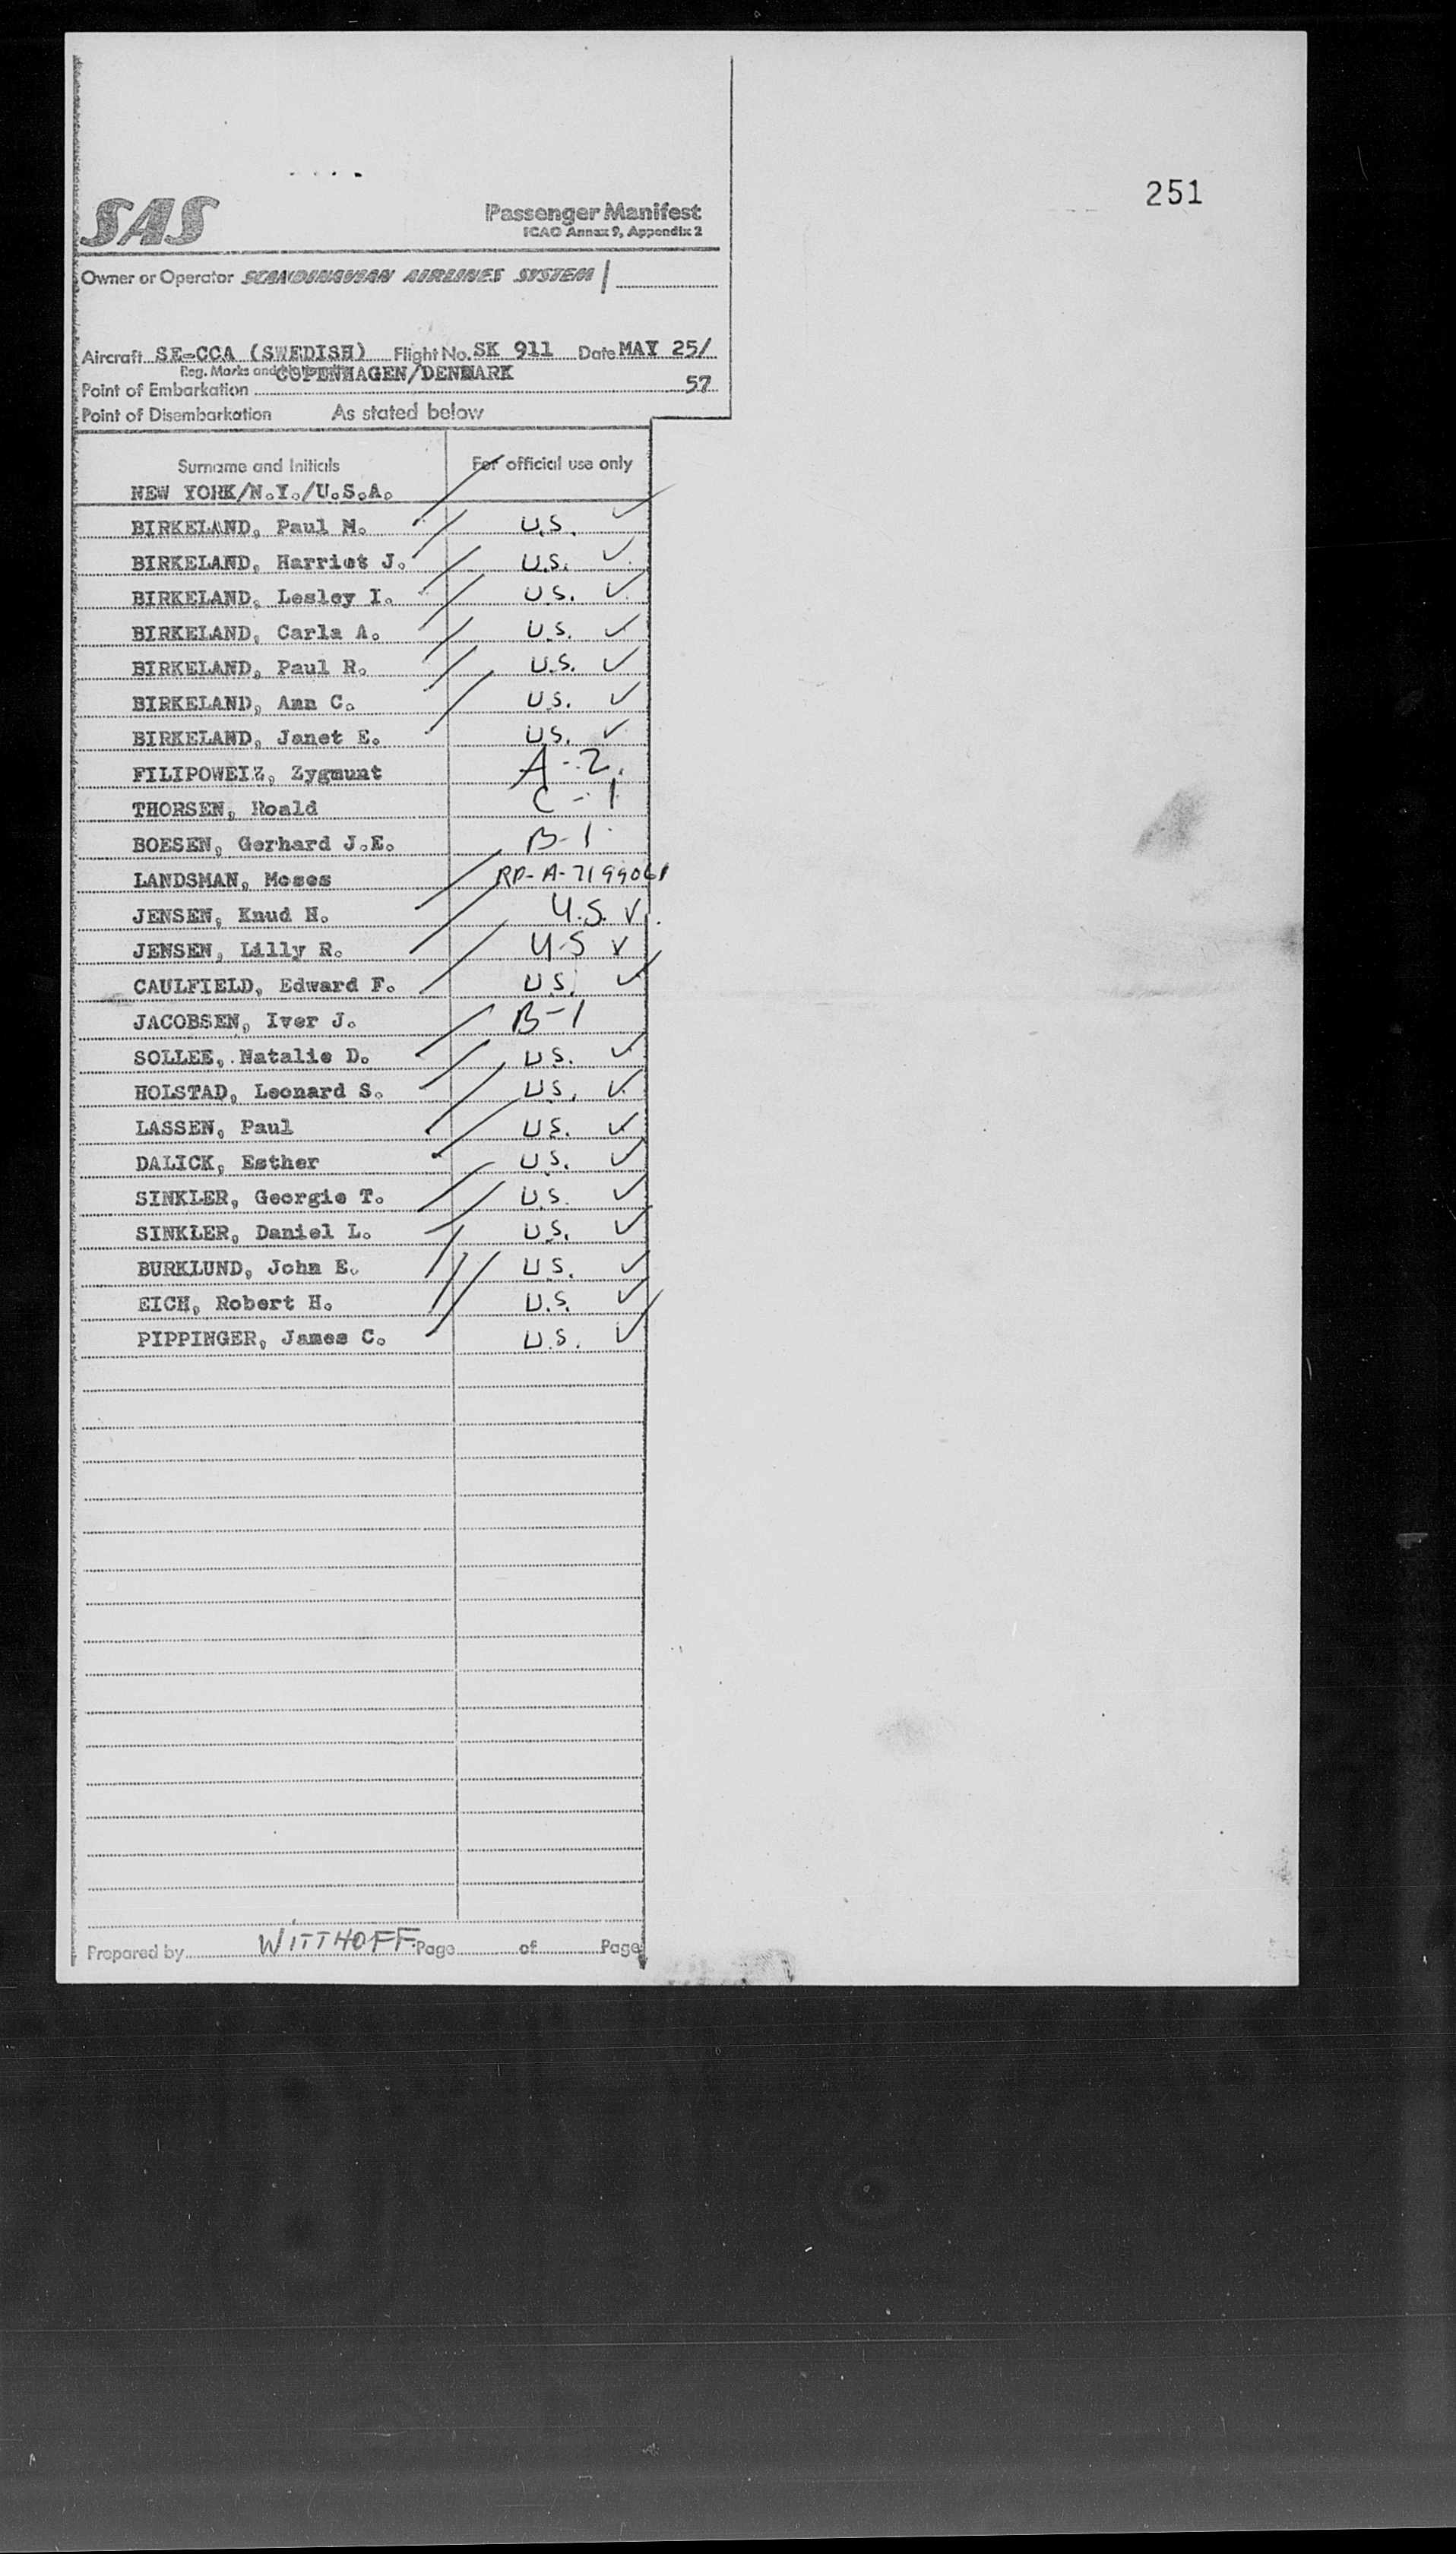 251
SAS
Passenger Manifest
ICAO Annex 9, Appendix 2
Owner or Operator SCANDINAVIAN AIRLINES SYSTEM
Aircraft SE-CCA (SWEDISH) Flight No. SK 911 Date MAY 25/
Reg. Marks and COPENHAGEN/DENMARK
Point of Embarkation 57
Point of Disembarkation As stated below
Surname and Initials For official use only
NEW YORK/N.Y./U.S.A.
BIRKELAND, Paul M. U.S. ✓
BIRKELAND, Harriet J. U.S. ✓
BIRKELAND, Lesley I. U.S. ✓
BIRKELAND, Carla A. U.S. ✓
BIRKELAND, Paul R. U.S. ✓
BIRKELAND, Ann C. U.S. ✓
BIRKELAND, Janet E. U.S. ✓
FILIPOWEIZ, Zygmunt A-2.
THORSEN, Roald C-1
BOESEN, Gerhard J.E. B-1
LANDSMAN, Moses RP-A-7199061
JENSEN, Knud H. U.S. ✓
JENSEN, Lilly R. U.S ✓
CAULFIELD, Edward F. U.S. ✓
JACOBSEN, Iver J. B-1
SOLLEE, Natalie D. U.S. ✓
HOLSTAD, Leonard S. U.S. ✓
LASSEN, Paul U.S. ✓
DALICK, Esther U.S. ✓
SINKLER, Georgie T. U.S. ✓
SINKLER, Daniel L. U.S. ✓
BURKLUND, John E. U.S. ✓
EICH, Robert H. U.S. ✓
PIPPINGER, James C. U.S. ✓
Prepared by WITTHOFF Page of Page